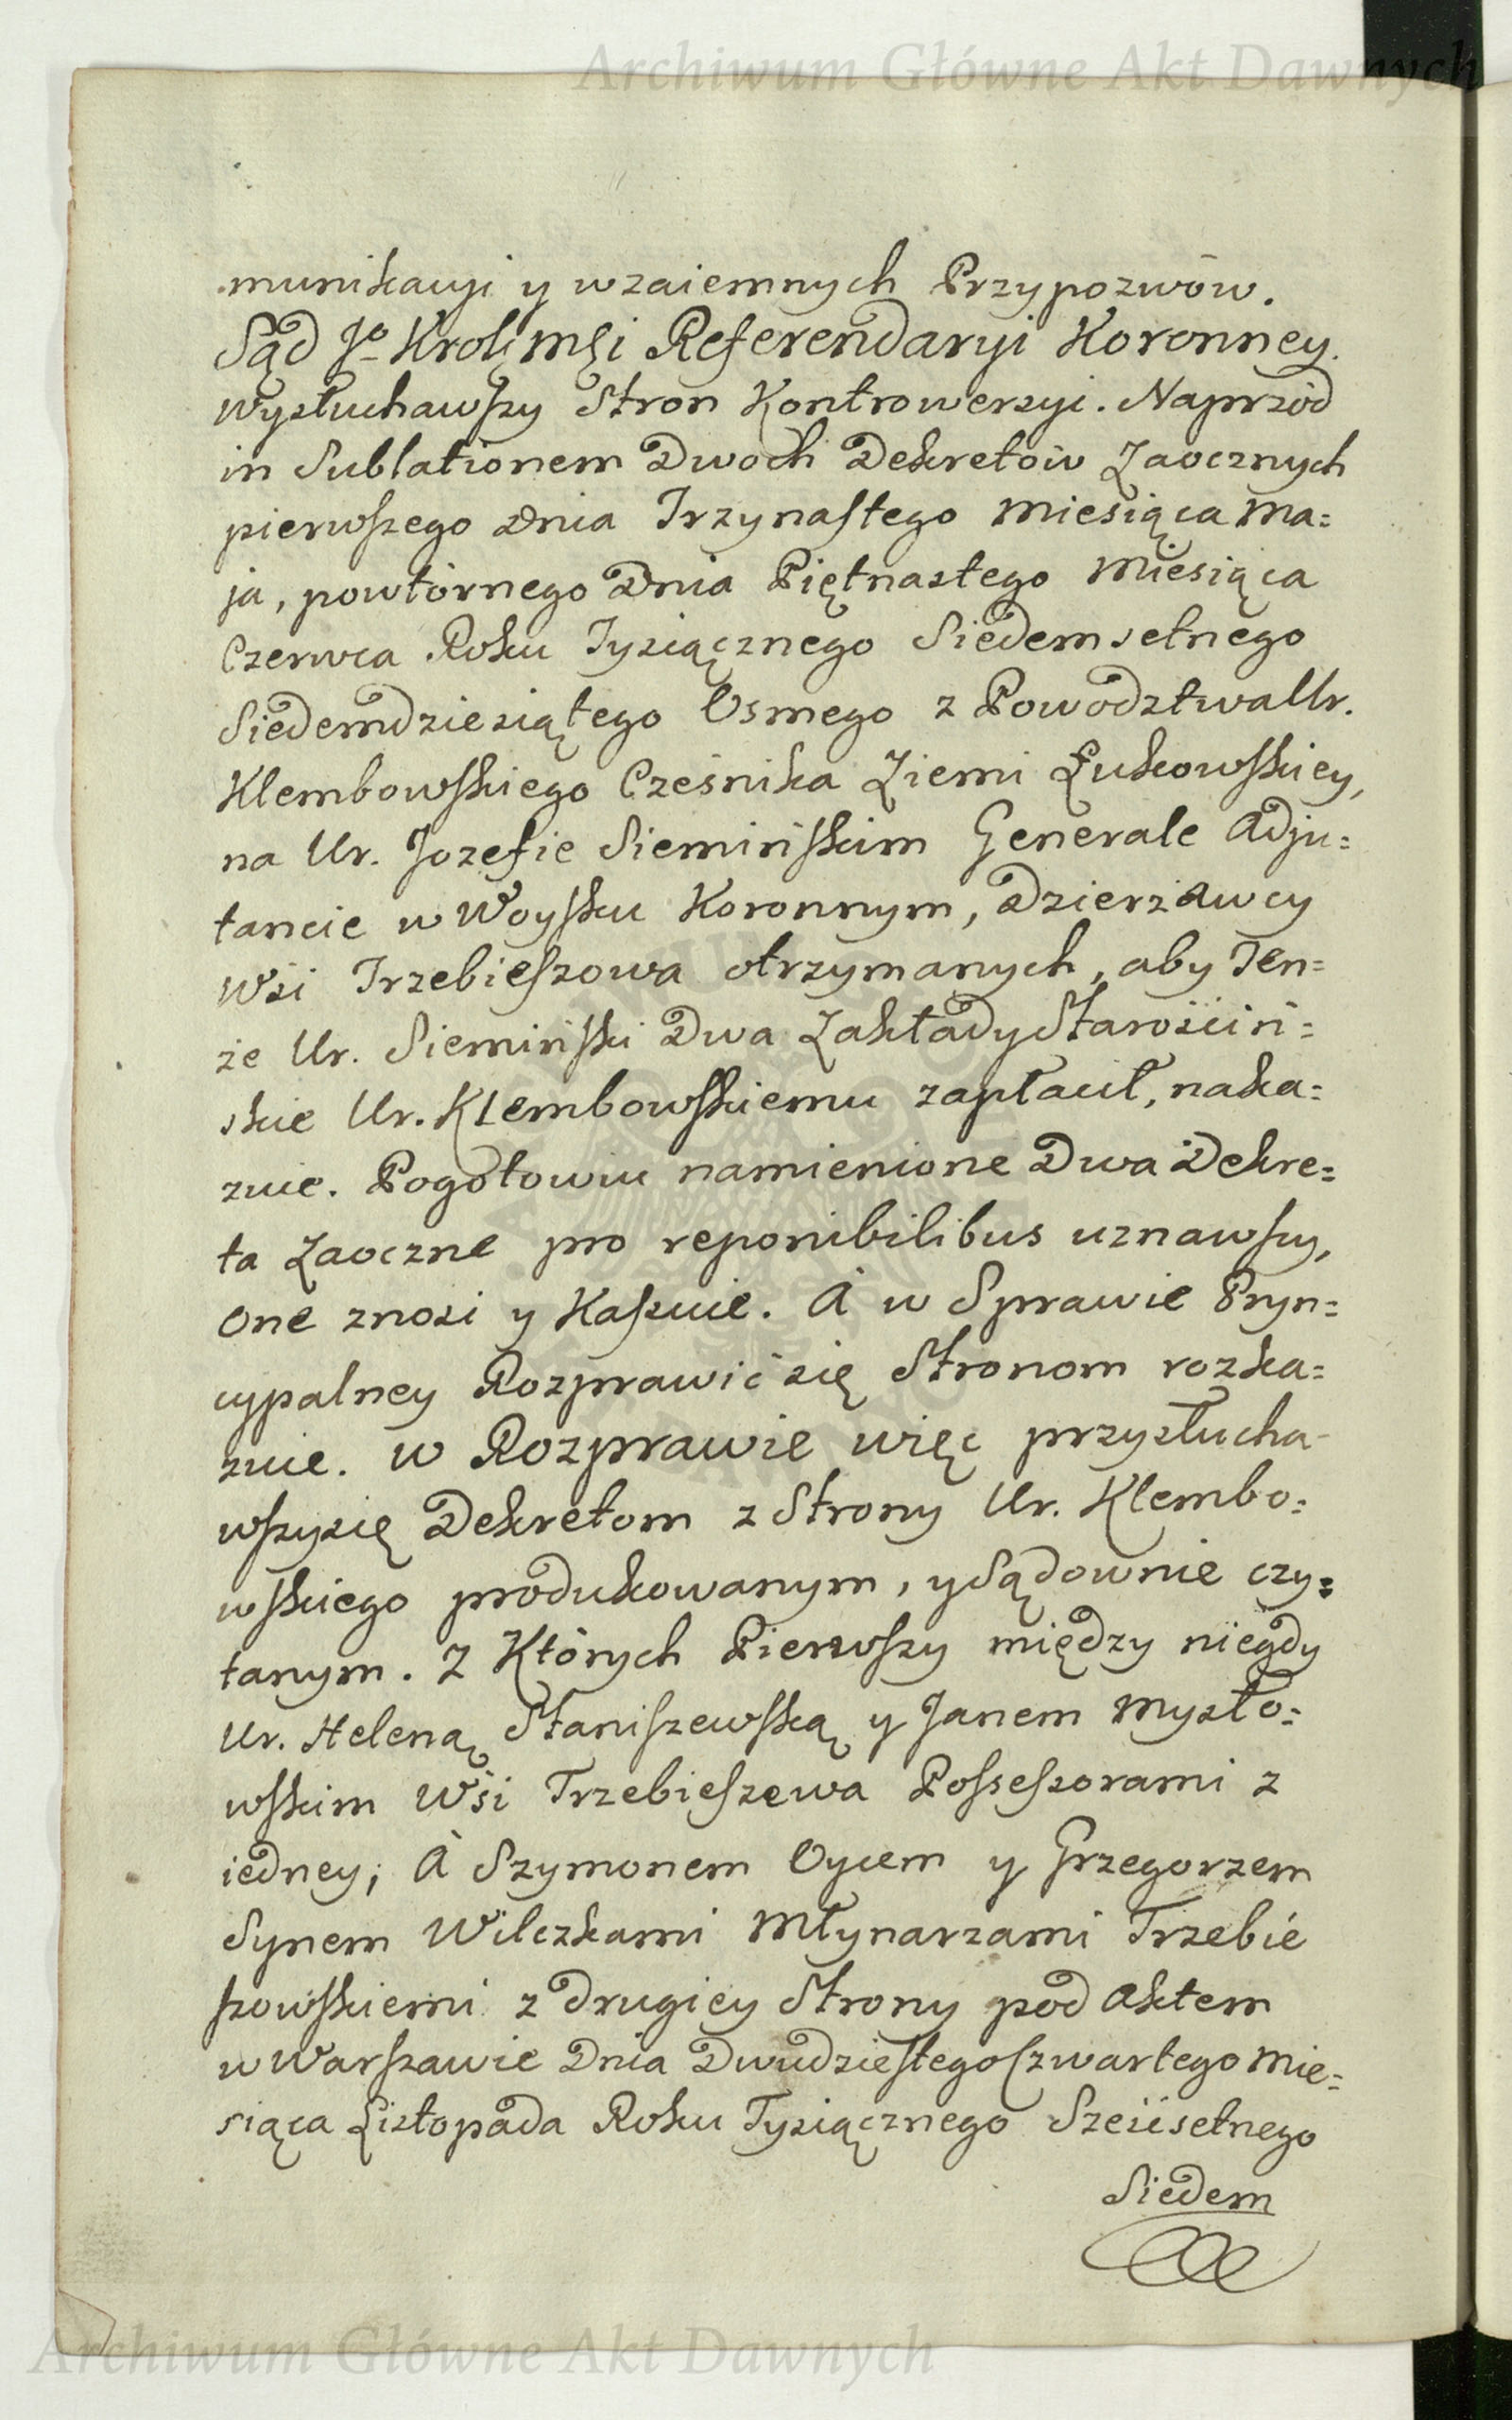 Archiwum Główne Akt Dawnych
munikacyi y wzaiemnych Przypozwów.
Sąd Jo Krolęmęi Referendaryi Koronney.
Wysłuchawszy Stron Kontrowersyi. Naprzód
in Sublationem Dwoch Dekretów Zaocznych
pierwszego Dnia Trzynastego Miesiąca Ma=
ja, powtórnego Dnia Piętnastego Miesiąca
Czerwca Roku Tysiącznego Siedemsetnego
Siedemdziesiątego Osmego z Powodztwa Ur.
Klembowskiego Cześnika Ziemi Łukowskiey,
na Ur. Jozefie Siemińskim Generale Adju=
tancie w Woysku Koronnym, Dzierżawcy
Wsi Trzebieszowa otrzymanych, aby Ten=
że Ur. Siemiński Dwa Zakłady Starościń=
skie Ur. Klembowskiemu zapłacił, naka=
zuie. Pogotowiu namienione Dwa Dekre=
ta Zaoczne pro reponibilibus uznawszy,
one znosi y Kassuie. A w Sprawie Pryn=
cypalney Rozprawić się Stronom rozka=
zuie. W Rozprawie więc przysłucha-
wszysię Dekretom z Strony Ur. Klembo=
wskiego produkowanym, y Sądownie czy=
tanym. Z Których Pierwszy między niegdy
Ur. Heleną Staniszewską y Janem Mysło=
wskim Wsi Trzebieszewa Possessorami z
iedney; A Szymonem Oycem y Grzegorzem
Synem Wilczkami Młynarzami Trzebie
szowskiemi z drugiey Strony pod Aktem
w Warszawie Dnia Dwudziestego Czwartego Mie=
siąca Listopada Roku Tysiącznego Sześćsetnego
Siedem
Archiwum Główne Akt Dawnych